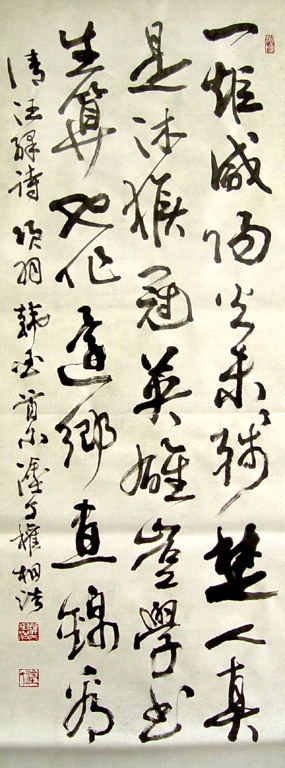 一炬咸陽火未殘楚人真
是沐猴冠英雄豈學書
生算也作還鄉晝錦看
清汪繹詩 項羽